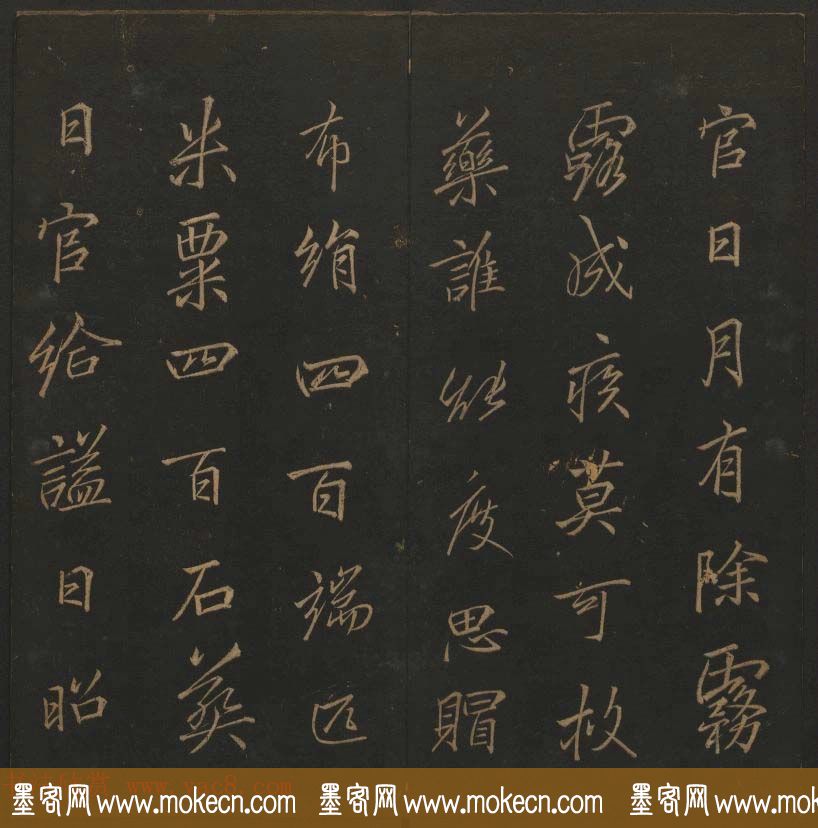 官日月有除霧
露成疾莫可救
藥誰能度思賵
布絹四百端匹
米粟四百石葬
日官給謚曰昭
书法欣赏 www.yac8.com
墨客网 www.mokecn.com 墨客网 www.mokecn.com 墨客网 www.mokecn.com